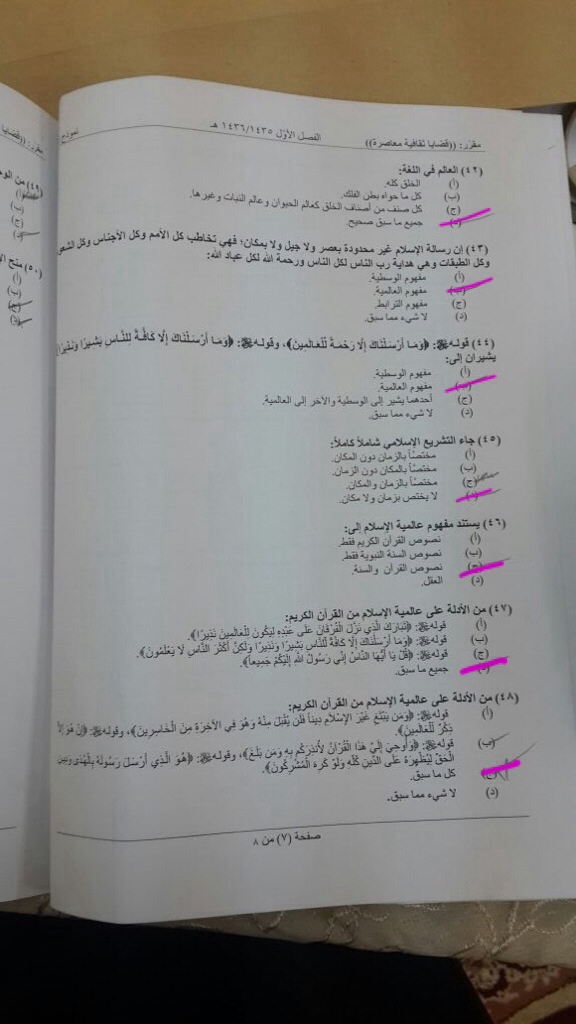 مقرّر: ((قضايا ثقافية معاصرة)) الفصل الأوّل ١٤٣٦/١٤٣٥ هـ نموذج
(٤٢) العالم في اللغة:
(أ) الخلق كله.
(ب) كل ما حواه بطن الفلك.
(ج) كل صنف من أصناف الخلق كعالم الحيوان وعالم النبات وغيرها.
(د) جميع ما سبق صحيح.
(٤٣) إن رسالة الإسلام غير محدودة بعصر ولا جيل ولا بمكان؛ فهي تخاطب كل الأمم وكل الأجناس وكل
وكل الطبقات وهي هداية رب الناس لكل الناس ورحمة الله لكل عباد الله:
(أ) مفهوم الوسطية.
(ب) مفهوم العالمية.
(ج) مفهوم الترابط.
(د) لا شيء مما سبق.
(٤٤) قولهﷻ: ﴿وَمَا أَرْسَلْنَاكَ إِلَّا رَحْمَةً لِّلْعَالَمِينَ﴾، وقولهﷻ: ﴿وَمَا أَرْسَلْنَاكَ إِلَّا كَافَّةً لِّلنَّاسِ بَشِيرًا وَنَذِيرًا
يشيران إلى:
(أ) مفهوم الوسطية.
(ب) مفهوم العالمية.
(ج) أحدهما يشير إلى الوسطية والآخر إلى العالمية.
(د) لا شيء مما سبق.
(٤٥) جاء التشريع الإسلامي شاملاً كاملاً:
(أ) مختصّاً بالزمان دون المكان.
(ب) مختصّاً بالمكان دون الزمان.
(ج) مختصّاً بالزمان والمكان.
(د) لا يختص بزمان ولا مكان.
(٤٦) يستند مفهوم عالمية الإسلام إلى:
(أ) نصوص القرآن الكريم فقط.
(ب) نصوص السنة النبوية فقط.
(ج) نصوص القرآن والسنة.
(د) العقل.
(٤٧) من الأدلة على عالمية الإسلام من القرآن الكريم:
(أ) قولهﷻ: ﴿تَبَارَكَ الَّذِي نَزَّلَ الْفُرْقَانَ عَلَى عَبْدِهِ لِيَكُونَ لِلْعَالَمِينَ نَذِيرًا﴾.
(ب) قولهﷻ: ﴿وَمَا أَرْسَلْنَاكَ إِلَّا كَافَّةً لِّلنَّاسِ بَشِيرًا وَنَذِيرًا وَلَكِنَّ أَكْثَرَ النَّاسِ لَا يَعْلَمُونَ﴾.
(ج) قولهﷻ: ﴿قُلْ يَا أَيُّهَا النَّاسُ إِنِّي رَسُولُ اللهِ إِلَيْكُمْ جَمِيعاً﴾.
(د) جميع ما سبق.
(٤٨) من الأدلة على عالمية الإسلام من القرآن الكريم:
(أ) قولهﷻ: ﴿وَمَن يَبْتَغِ غَيْرَ الإِسْلَامِ دِيناً فَلَن يُقْبَلَ مِنْهُ وَهُوَ فِي الآخِرَةِ مِنَ الْخَاسِرِينَ﴾، وقولهﷻ: ﴿إِنْ هُوَ إِلاَّ
ذِكْرٌ لِّلْعَالَمِينَ﴾.
(ب) قولهﷻ: ﴿وَأُوحِيَ إِلَيَّ هَذَا الْقُرْآنُ لأُنذِرَكُم بِهِ وَمَن بَلَغَ﴾، وقولهﷻ: ﴿هُوَ الَّذِي أَرْسَلَ رَسُولَهُ بِالْهُدَى وَدِينِ
الْحَقِّ لِيُظْهِرَهُ عَلَى الدِّينِ كُلِّهِ وَلَوْ كَرِهَ الْمُشْرِكُونَ﴾.
(ج) كل ما سبق.
(د) لا شيء مما سبق.
صفحة (٧) من ٨
مقرّر: ((قضايا
(٤٩) من
(أ)
(ب)
(ج)
(د)
(٥٠) منح
(أ)
(ب)
(ج)
(د)